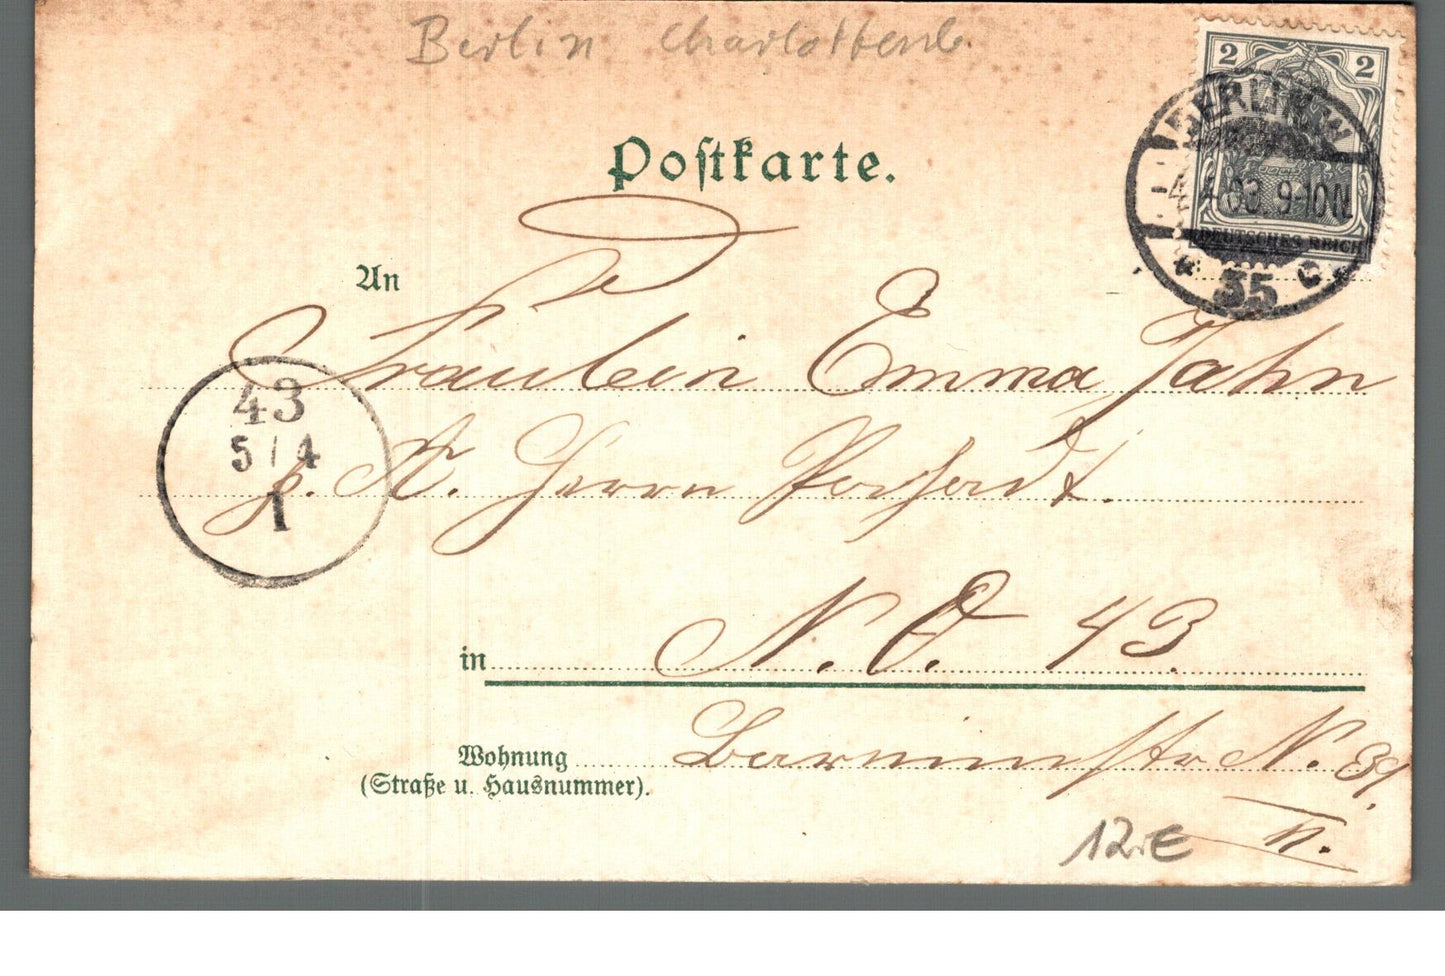 Berlin Charlottenb.
2 2
BERLIN W
-4. 4 03 9-10 N.
DEUTSCHES REICH
* 35 c *
Postkarte.
An
Fräulein Emma Jahn
p. A. Herrn
43
5/4
1
in N. O. 43.
Wohnung Barnimstr N. 39.
(Straße u. Hausnummer).
II.
12.€